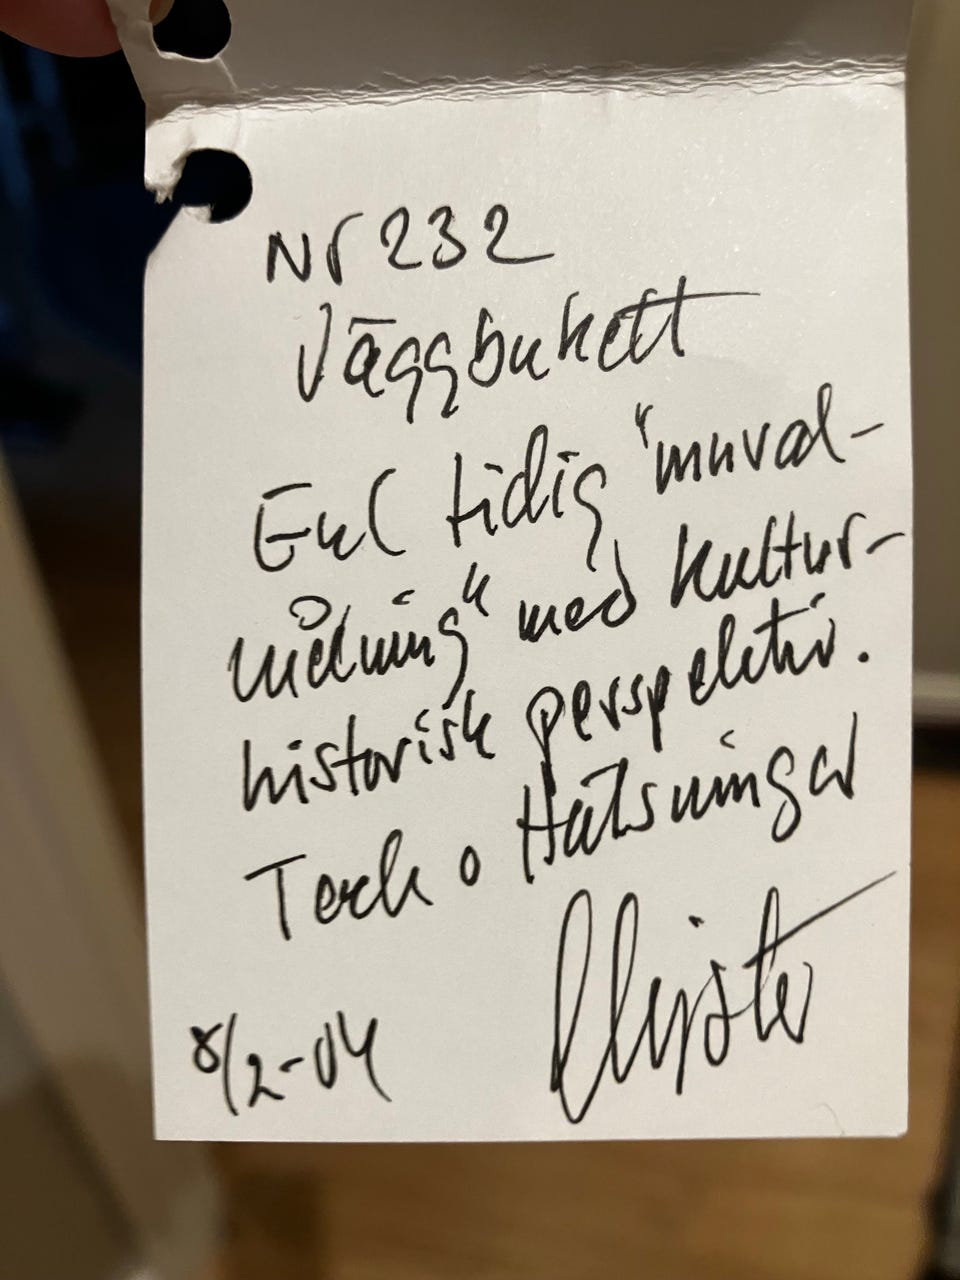 Nr 232
Väggbukett
Enl tidig "mural-
målning" med kultur-
historisk perspektiv.
Tack o Hälsningar
Christer
8/2-04